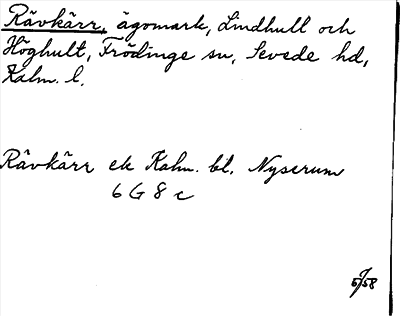 Rävkärr, ägomark, Lindhult och
Höghult, Frödinge sn, Sevede hd,
Kalm. l.
Rävkärr ek Kalm. bl. Nyserum
6 G 8 c